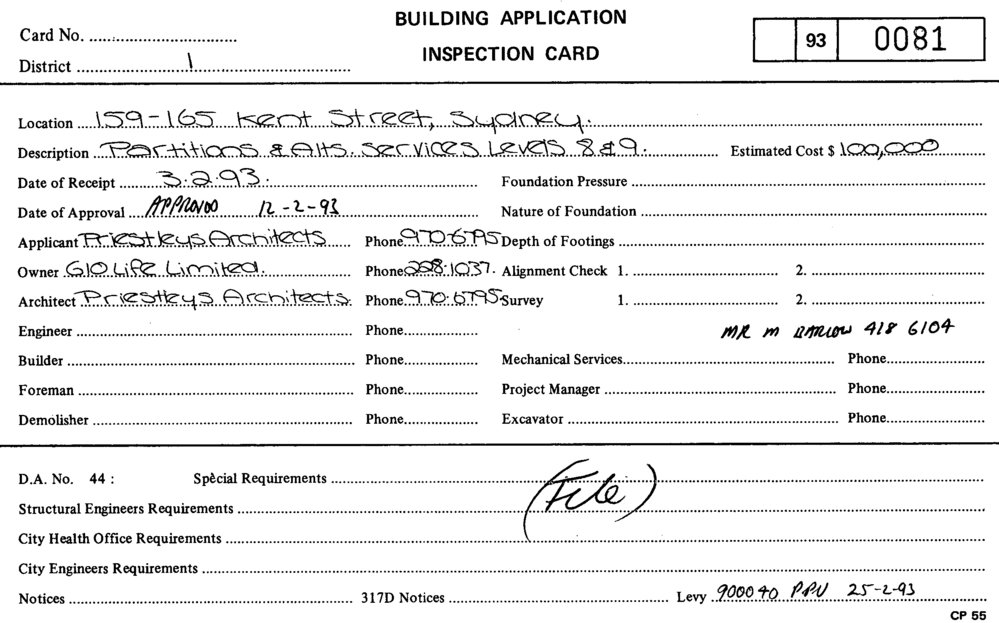 BUILDING APPLICATION
INSPECTION CARD
Card No.
District 1
93 0081
Location 159-165 Kent Street, Sydney.
Description Partitions & Alts. Services Levels 8 & 9. Estimated Cost $ 100,000
Date of Receipt 3.2.93. Foundation Pressure
Date of Approval APPROVED 12-2-93 Nature of Foundation
Applicant Priestleys Architects Phone 970-6795 Depth of Footings
Owner GIO Life Limited. Phone 228.1037. Alignment Check 1. 2.
Architect Priestleys Architects. Phone 970.6795 Survey 1. 2.
Engineer Phone MR M BARLOW 418 6104
Builder Phone Mechanical Services Phone
Foreman Phone Project Manager Phone
Demolisher Phone Excavator Phone
D.A. No. 44 : Special Requirements
(File)
Structural Engineers Requirements
City Health Office Requirements
City Engineers Requirements
Notices 317D Notices Levy 900040 PPU 25-2-93
CP 55